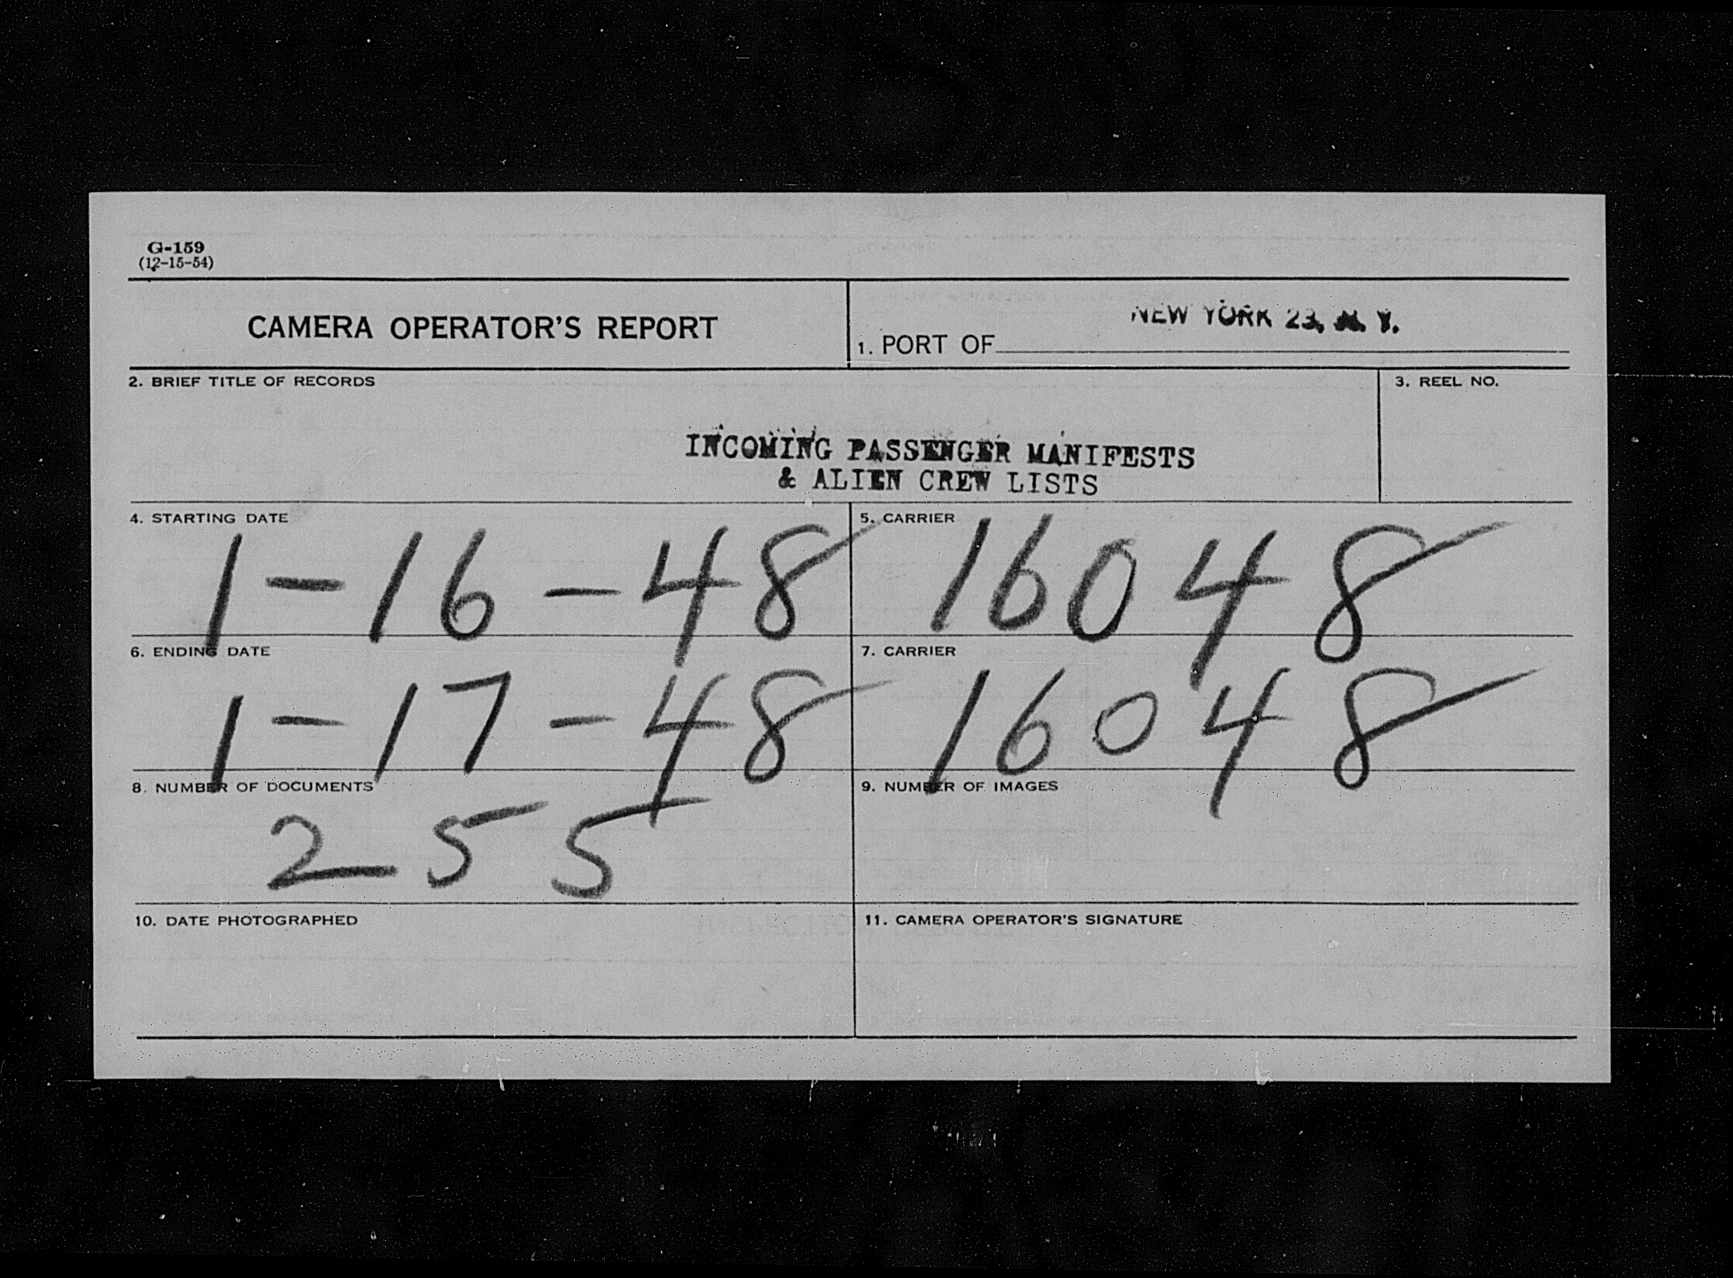 G-159
(12-15-54)
CAMERA OPERATOR'S REPORT
1. PORT OF NEW YORK 23, N. Y.
2. BRIEF TITLE OF RECORDS
3. REEL NO.
INCOMING PASSENGER MANIFESTS
& ALIEN CREW LISTS
4. STARTING DATE
1-16-48
5. CARRIER
16048
6. ENDING DATE
1-17-48
7. CARRIER
16048
8. NUMBER OF DOCUMENTS
255
9. NUMBER OF IMAGES
10. DATE PHOTOGRAPHED
11. CAMERA OPERATOR'S SIGNATURE